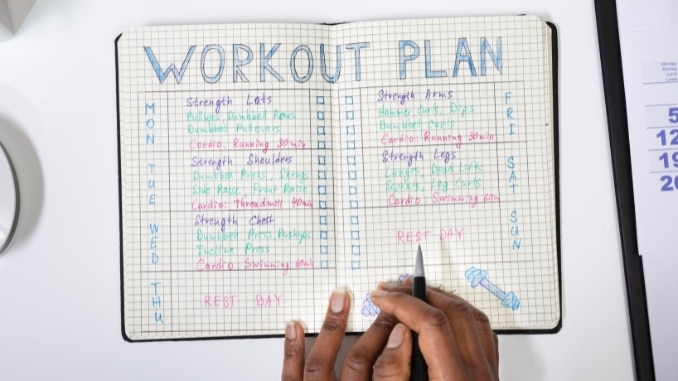 WORKOUT PLAN
MON
Strength Lats
Pullups, Dumbbell Rows
Dumbbell Pullovers
Cardio: Running 30min
TUE
Strength Shoulders
Dumbbell Press, Shrugs
Side Raise, Front Raise
Cardio: Threadmill 40min
WED
Strength Chest
Dumbbell Press Pushups
Incline Press
Cardio: Swimming 60min
THU
REST DAY
FRI
Strength Arms
Hammer Curls, Dips
Dumbbell Curls
Cardio: Running 30min
SAT
Strength Legs
Lunges, Dead Lifts
Squats, Leg Curls
Cardio: Swimming 60m
SUN
REST DAY
5
12
19